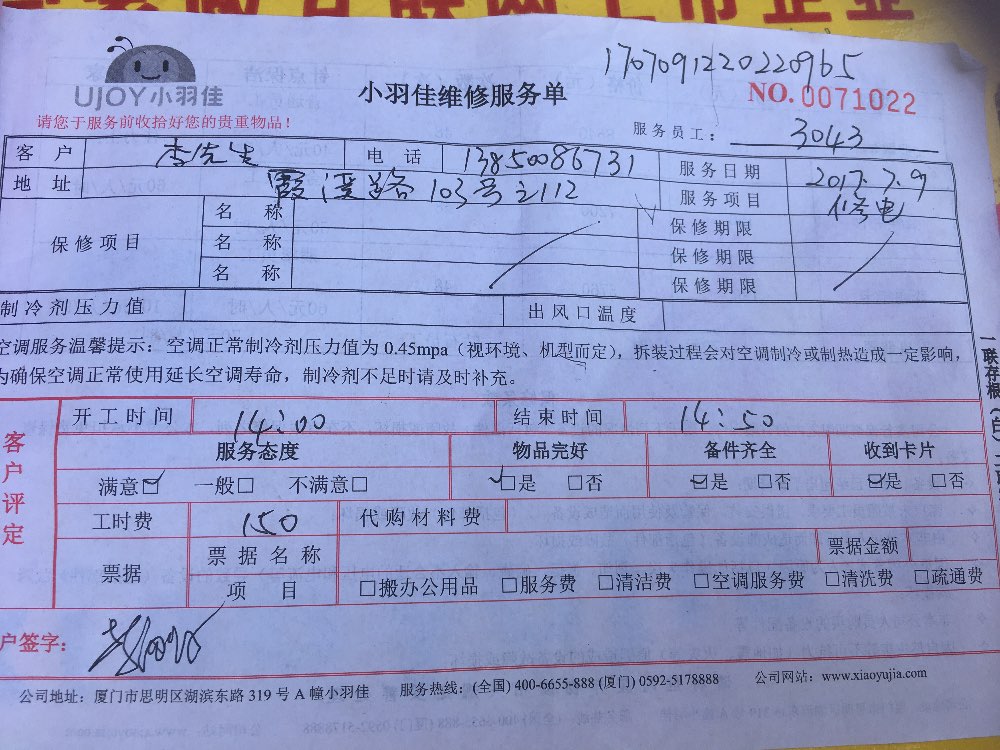 1707091220220965
UJOY小羽佳
小羽佳维修服务单
NO.0071022
请您于服务前收拾好您的贵重物品！
服务员工： 3043
客户 李先生 电话 13850086731 服务日期 2017.7.9
地址 霞溪路103号之112 服务项目 修电
保修项目 名称 保修期限
名称 保修期限
名称 保修期限
制冷剂压力值 出风口温度
空调服务温馨提示：空调正常制冷剂压力值为0.45mpa（视环境、机型而定），拆装过程会对空调制冷或制热造成一定影响，
为确保空调正常使用延长空调寿命，制冷剂不足时请及时补充。
客户评定
开工时间 14:00 结束时间 14:50
服务态度 物品完好 备件齐全 收到卡片
满意☑ 一般□ 不满意□ ☑是 □否 ☑是 □否 ☑是 □否
工时费 150 代购材料费
票据 票据名称 票据金额
项目 □搬办公用品 □服务费 □清洁费 □空调服务费 □清洗费 □疏通费
户签字：
公司地址：厦门市思明区湖滨东路319号A幢小羽佳 服务热线：(全国) 400-6655-888 (厦门) 0592-5178888 公司网站：www.xiaoyujia.com
一联存根（白）